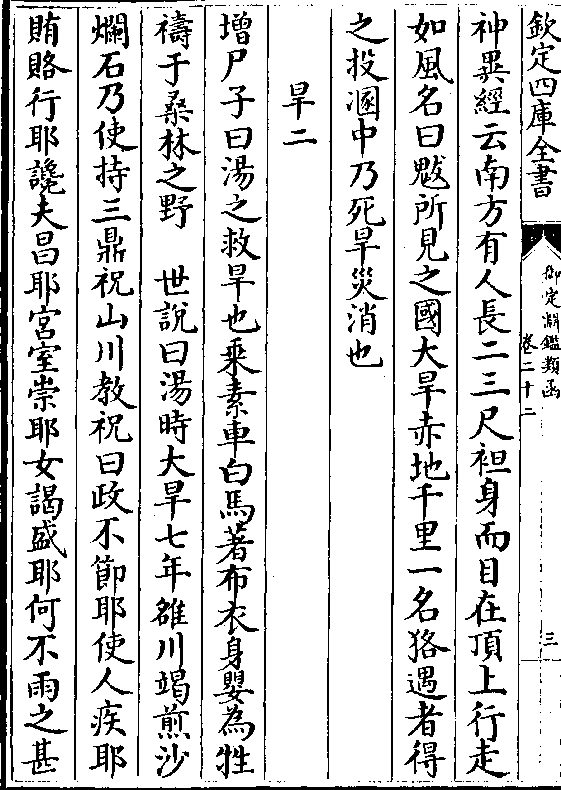 欽定四庫全書
御定淵鑑類函
卷二十二
三
神異經云南方有人長二三尺袒身而目在頂上行走
如風名曰魃所見之國大旱赤地千里一名狢遇者得
之投溷中乃死旱災消也
旱二
增尸子曰湯之救旱也乘素車白馬著布衣身嬰為牲
禱于桑林之野　世說曰湯時大旱七年雒川竭煎沙
爛石乃使持三鼎祝山川教祝曰政不節耶使人疾耶
賄賂行耶讒夫昌耶宮室崇耶女謁盛耶何不雨之甚